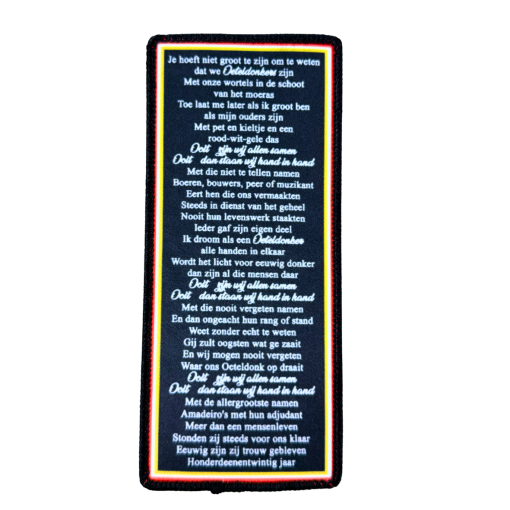 Je hoeft niet groot te zijn om te weten
dat we Oeteldonkers zijn
Met onze wortels in de schoot
van het moeras
Toe laat me later als ik groot ben
als mijn ouders zijn
Met pet en kieltje en een
rood-wit-gele das
Ooit zijn wij allen samen
Ooit dan staan wij hand in hand
Met die niet te tellen namen
Boeren, bouwers, peer of muzikant
Eert hen die ons vermaakten
Steeds in dienst van het geheel
Nooit hun levenswerk staakten
Ieder gaf zijn eigen deel
Ik droom als een Oeteldonker
alle handen in elkaar
Wordt het licht voor eeuwig donker
dan zijn al die mensen daar
Ooit zijn wij allen samen
Ooit dan staan wij hand in hand
Met die nooit vergeten namen
En dan ongeacht hun rang of stand
Weet zonder echt te weten
Gij zult oogsten wat ge zaait
En wij mogen nooit vergeten
Waar ons Oeteldonk op draait
Ooit zijn wij allen samen
Ooit dan staan wij hand in hand
Met de allergrootste namen
Amadeiro's met hun adjudant
Meer dan een mensenleven
Stonden zij steeds voor ons klaar
Eeuwig zijn zij trouw gebleven
Honderdeenentwintig jaar